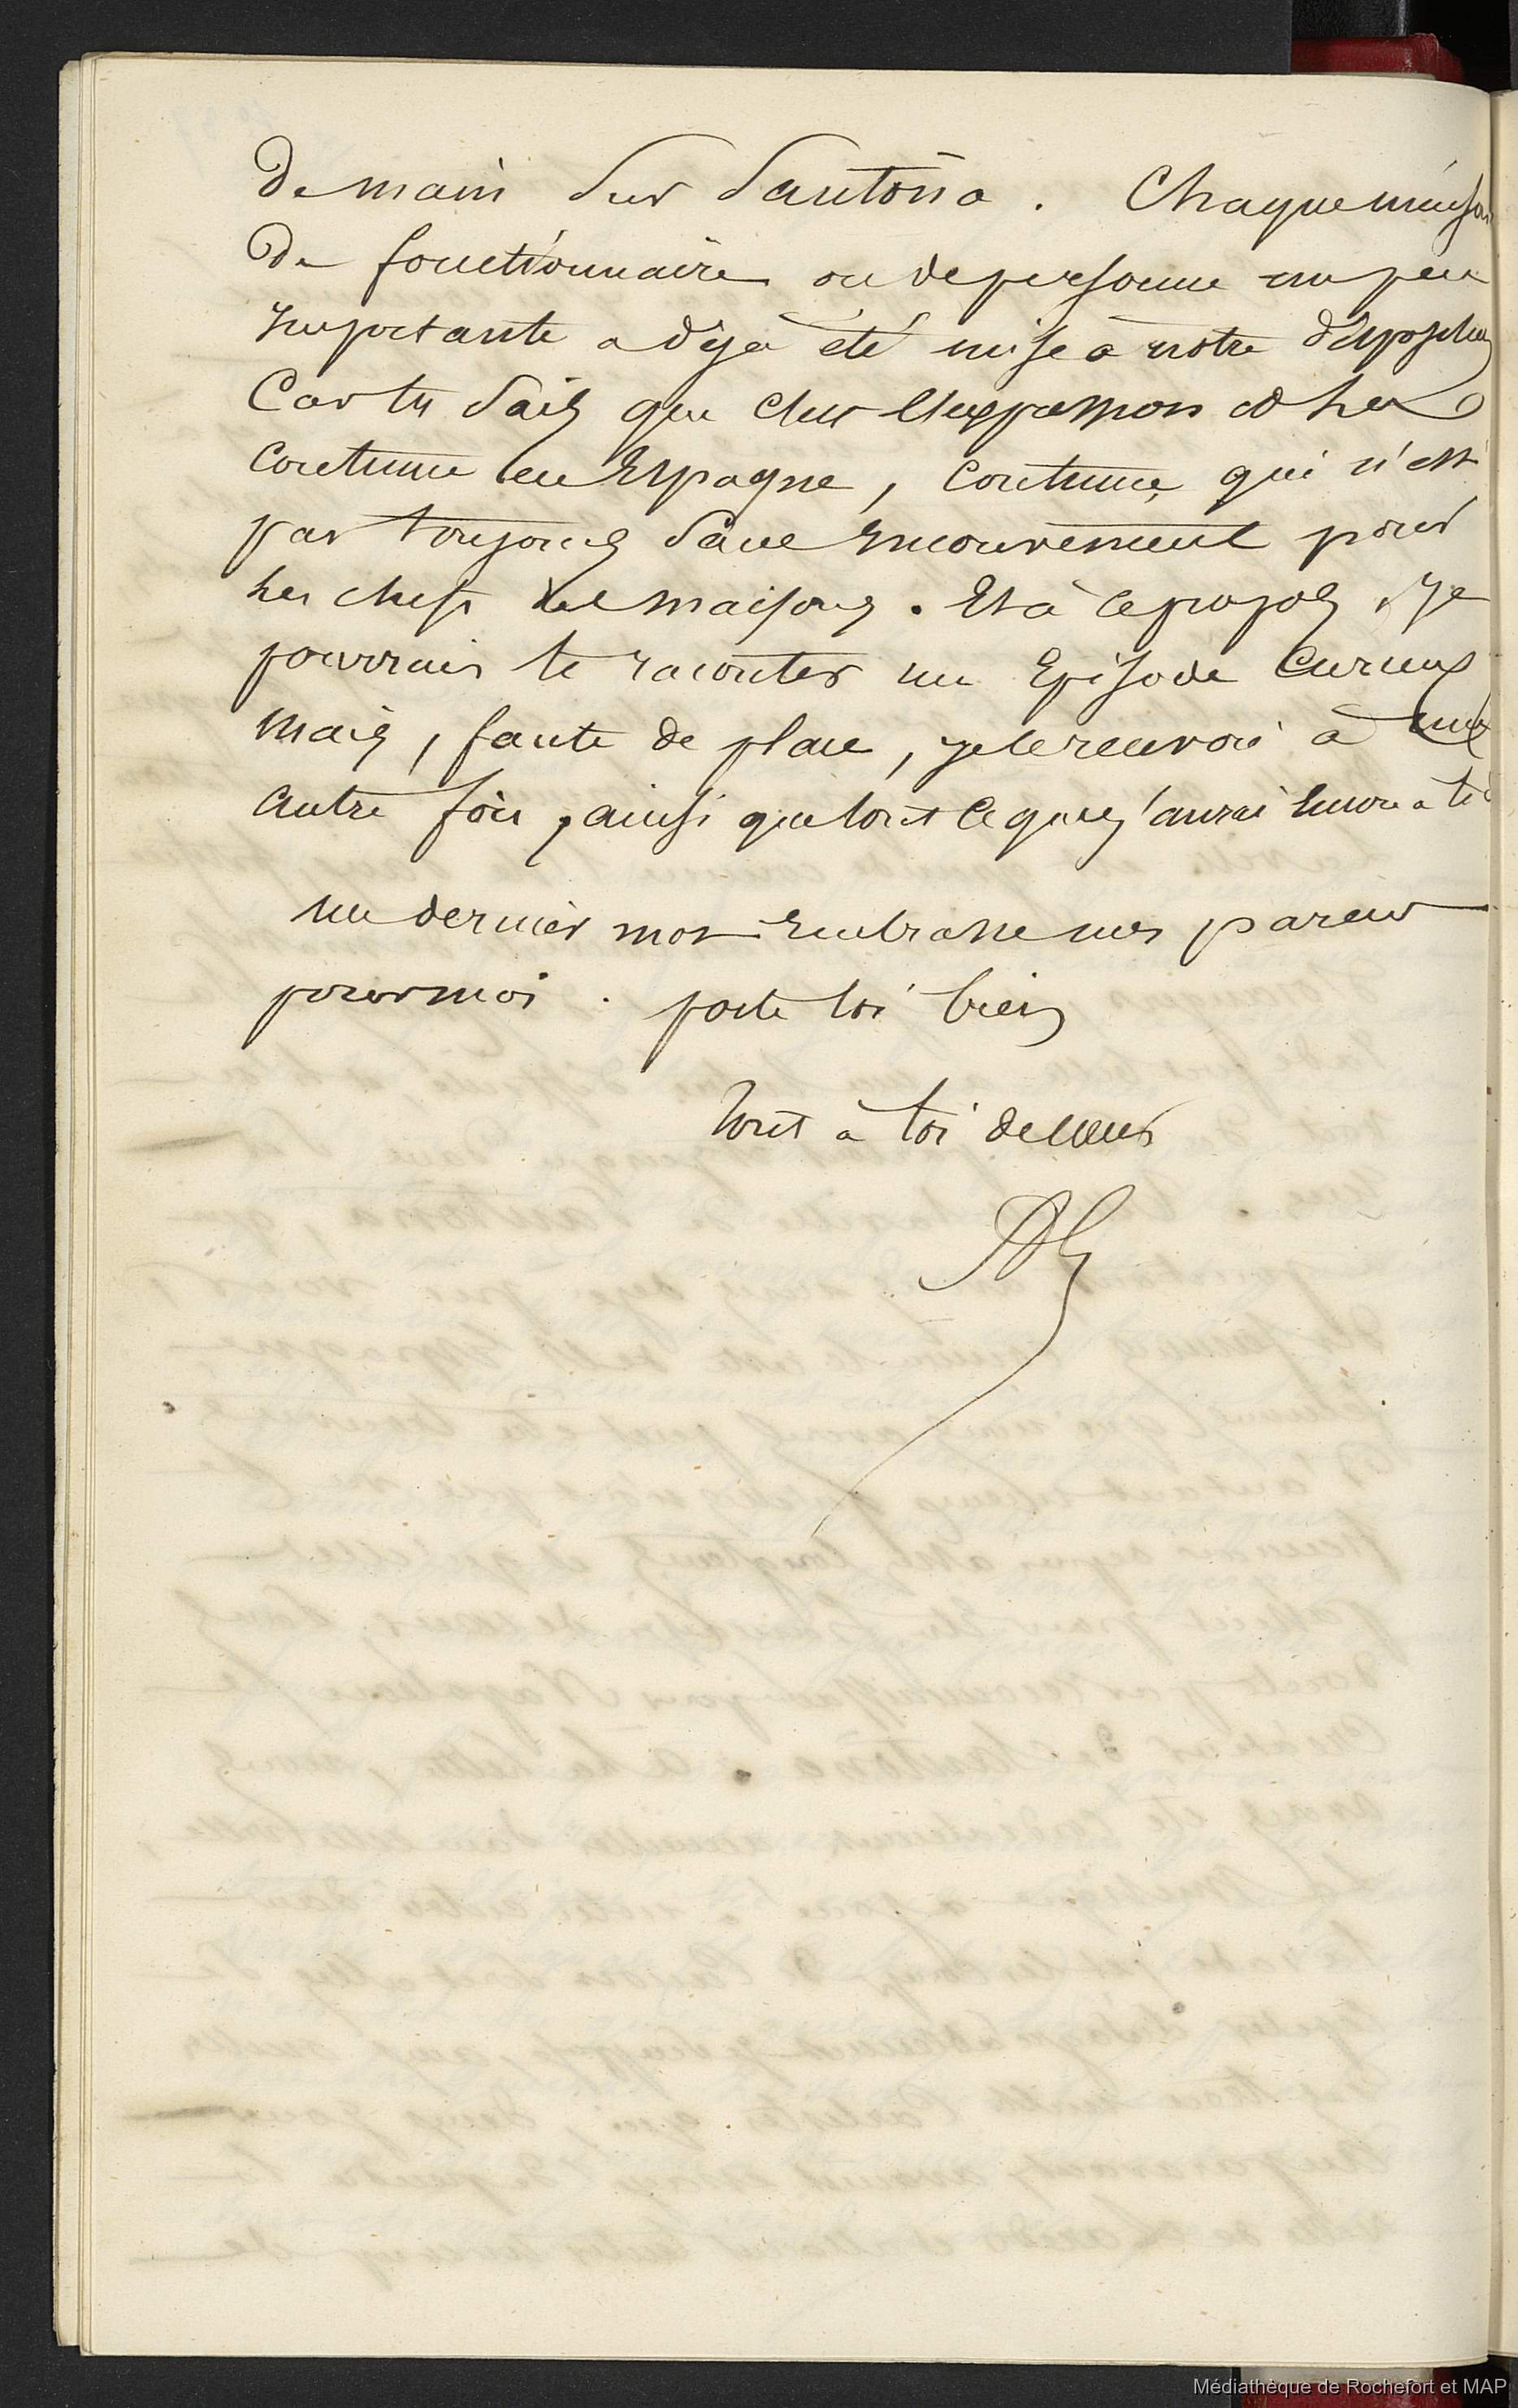 Demain sur Santoña. Chaque maison
de fonctionnaire ou de personne un peu
importante a déjà été mise à notre disposition
Car tu sais que c'est
coutume en Espagne, coutume, qui n'est
pas toujours sans inconvénient pour
les chefs de maisons. Et à ce propos, je
pourrais te raconter un Episode curieux
mais, faute de place, je le renvoie à une
autre fois, ainsi que tout ce que j'aurai encore à te
un dernier mot Embrasse mes parents
pour moi. porte toi bien
tout à toi de cœur
Médiathèque de Rochefort et MAP